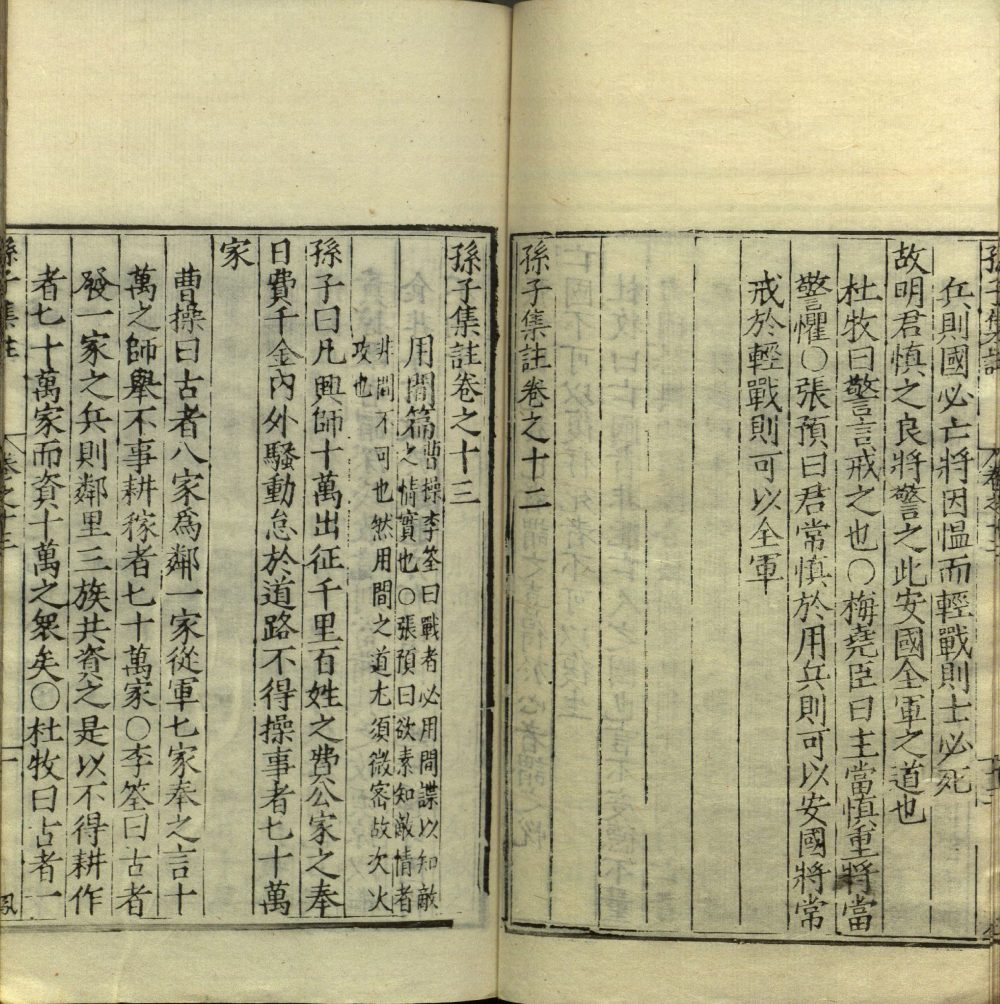 兵則國必亡將因慍而輕戰則士必死
故明君慎之良將警之此安國全軍之道也
杜牧曰警言戒之也〇梅堯臣曰主當慎重將當
警懼〇張預曰君常慎於用兵則可以安國將常
戒於輕戰則可以全軍
孫子集註卷之十二
孫子集註卷之十三
用間篇曹操李筌曰戰者必用間諜以知敵
之情實也〇張預曰欲素知敵情者
非間不可也然用間之道尢須微密故次火
攻也
孫子曰凡興師十萬出征千里百姓之費公家之奉
日費千金內外騷動怠於道路不得操事者七十萬
家
曹操曰古者八家爲鄰一家從軍七家奉之言十
萬之師舉不事耕稼者七十萬家〇李筌曰古者
發一家之兵則鄰里三族共資之是以不得耕作
者七十萬家而資十萬之衆矣〇杜牧曰古者一
孫子集註